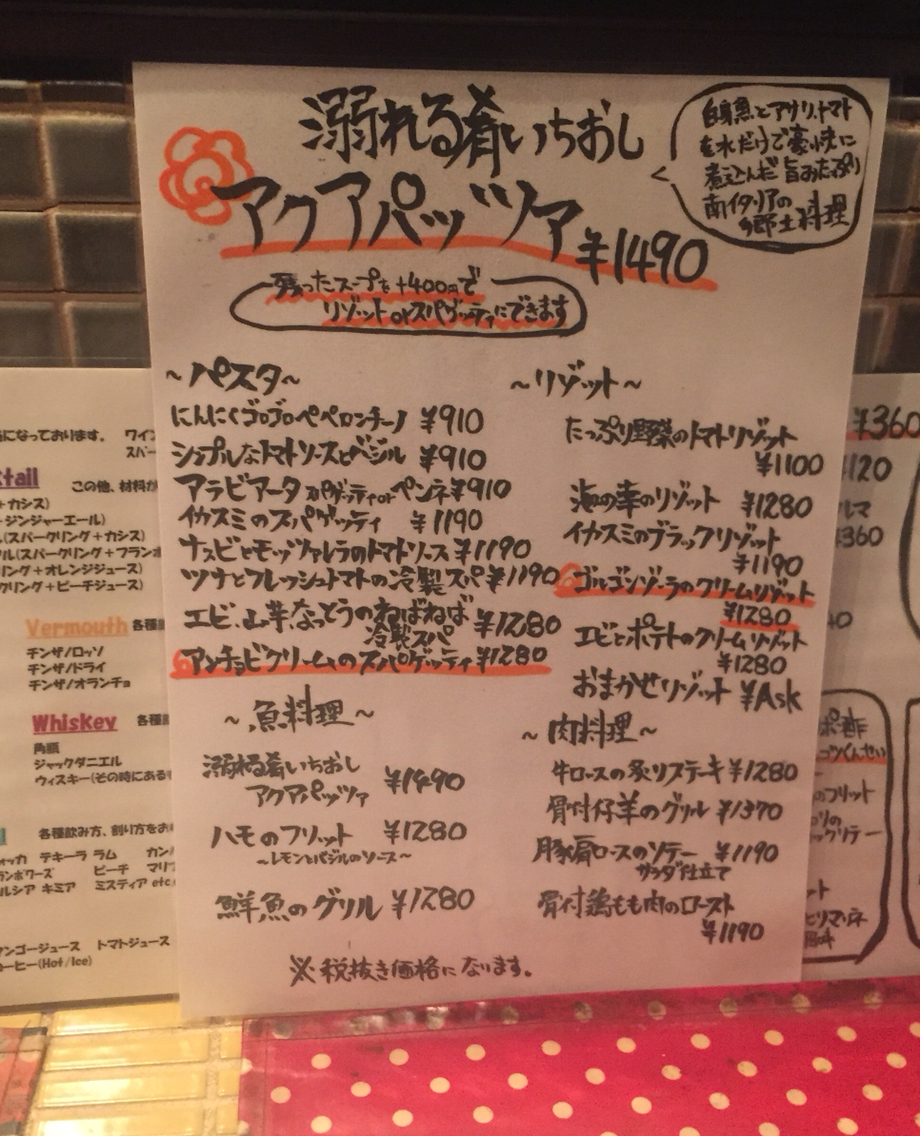 溺れる肴いちおし
アクアパッツァ ¥1490
白身魚とアサリ、トマト
を水だけで豪快に
煮込んだ旨みたっぷり
南イタリアの
郷土料理
残ったスープを+400円で
リゾットorスパゲッティにできます
~パスタ~
にんにくゴロゴロペペロンチーノ ¥910
シンプルなトマトソースとバジル ¥910
アラビアータ スパゲッティorペンネ ¥910
イカスミのスパゲッティ ¥1190
ナスビとモッツァレラのトマトソース ¥1190
ツナとフレッシュトマトの冷製スパ ¥1190
エビ、山芋、なっとうのねばねば
冷製スパ ¥1280
アンチョビクリームのスパゲッティ ¥1280
~リゾット~
たっぷり野菜のトマトリゾット
¥1100
海の幸のリゾット ¥1280
イカスミのブラックリゾット
¥1190
ゴルゴンゾーラのクリームリゾット
¥1280
エビとポテトのクリームリゾット
¥1280
おまかせリゾット ¥Ask
~魚料理~
溺れる肴いちおし
アクアパッツァ ¥1490
ハモのフリット ¥1280
~レモンとバジルのソース~
鮮魚のグリル ¥1280
~肉料理~
牛ロースの炙りステーキ ¥1280
骨付仔羊のグリル ¥1370
豚肩ロースのソテー ¥1190
サラダ仕立て
骨付鶏もも肉のロースト
¥1190
※税抜き価格になります。
になっております。 ワイン
スパー
ktail この他、材料が
+カシス)
ージンジャーエール)
(スパークリング+カシス)
ル(スパークリング+フランボ
リング+オレンジジュース)
クリング+ピーチジュース)
Vermouth 各種
チンザノロッソ
チンザノドライ
チンザノオランチョ
Whiskey 各種
角瓶
ジャックダニエル
ウィスキー(その時にある
各種飲み方、割り方をお
ォッカ テキーラ ラム カン
ランボワーズ ピーチ マリブ
ルシア キミア ミスティア etc
マンゴージュース トマトジュース
コーヒー(Hot/Ice)
¥360
120
ルマ
360
40
ポン酢
のフリット